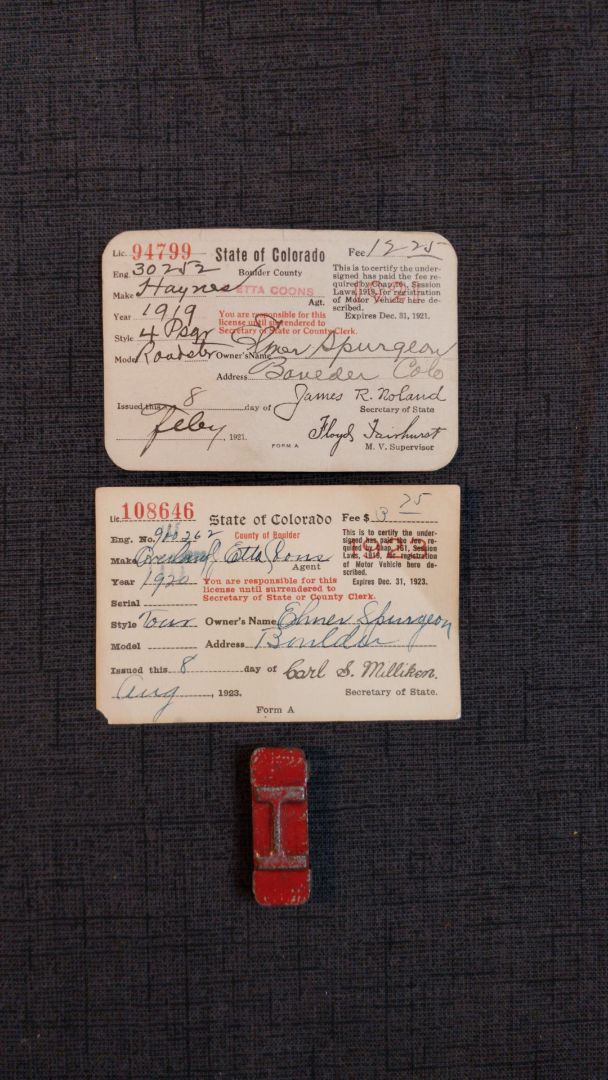 Lic. 94799 State of Colorado Fee 12 25
Eng. 30252 Boulder County
This is to certify the under-
signed has paid the fee re-
quired by Chap. 161, Session
Laws, 1919, for registration
of Motor Vehicle here de-
scribed.
Expires Dec. 31, 1921.
1921
Make Haynes ETTA COONS Agt.
Year 1919 You are responsible for this
license until surrendered to
Secretary of State or County Clerk.
Style 4 Psgr
Model Roadster Owner's Name Elmer Spurgeon
Address Boulder Colo
Issued this 8 day of James R. Noland
Secretary of State
Feby, 1921. Floyd Fairhurst
FORM A M. V. Supervisor
Lic. 108646 State of Colorado Fee $ 3 75
Eng. No. County of Boulder
This is to certify the under-
signed has paid the fee re-
quired by Chap. 161, Session
Laws, 1919, for registration
of Motor Vehicle here de-
scribed.
Expires Dec. 31, 1923.
1923
Make Overland Etta Coons
Agent
Year 1920 You are responsible for this
license until surrendered to
Secretary of State or County Clerk.
Serial
Style Tour Owner's Name Elmer Spurgeon
Model Address Boulder
Issued this 8 day of Carl S. Milliken.
Aug, 1923. Secretary of State.
Form A
I